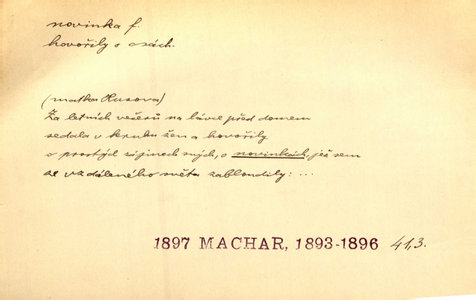 novinka f.
hovořily o osách.
(matka Husova)
Za letních večerů na lávce před domem
sedala v kruhu žen a hovořily
o prostých zájmech svých, o novinkách, jež sem
se vzdáleného světa zabloudily: ...
1897 MACHAR, 1893-1896 41,3.